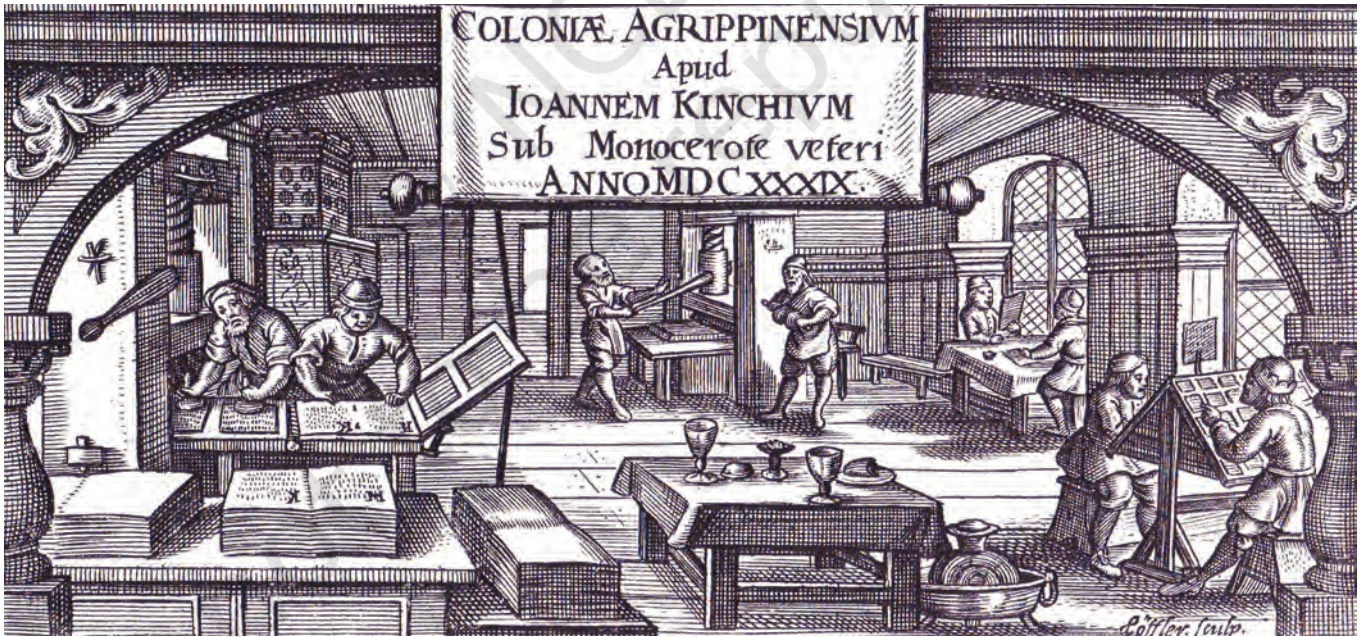 COLONIÆ AGRIPPINENSIVM
Apud
IOANNEM KINCHIVM
Sub Monocerote veteri
ANNO MDCXXXIX.
sculp.